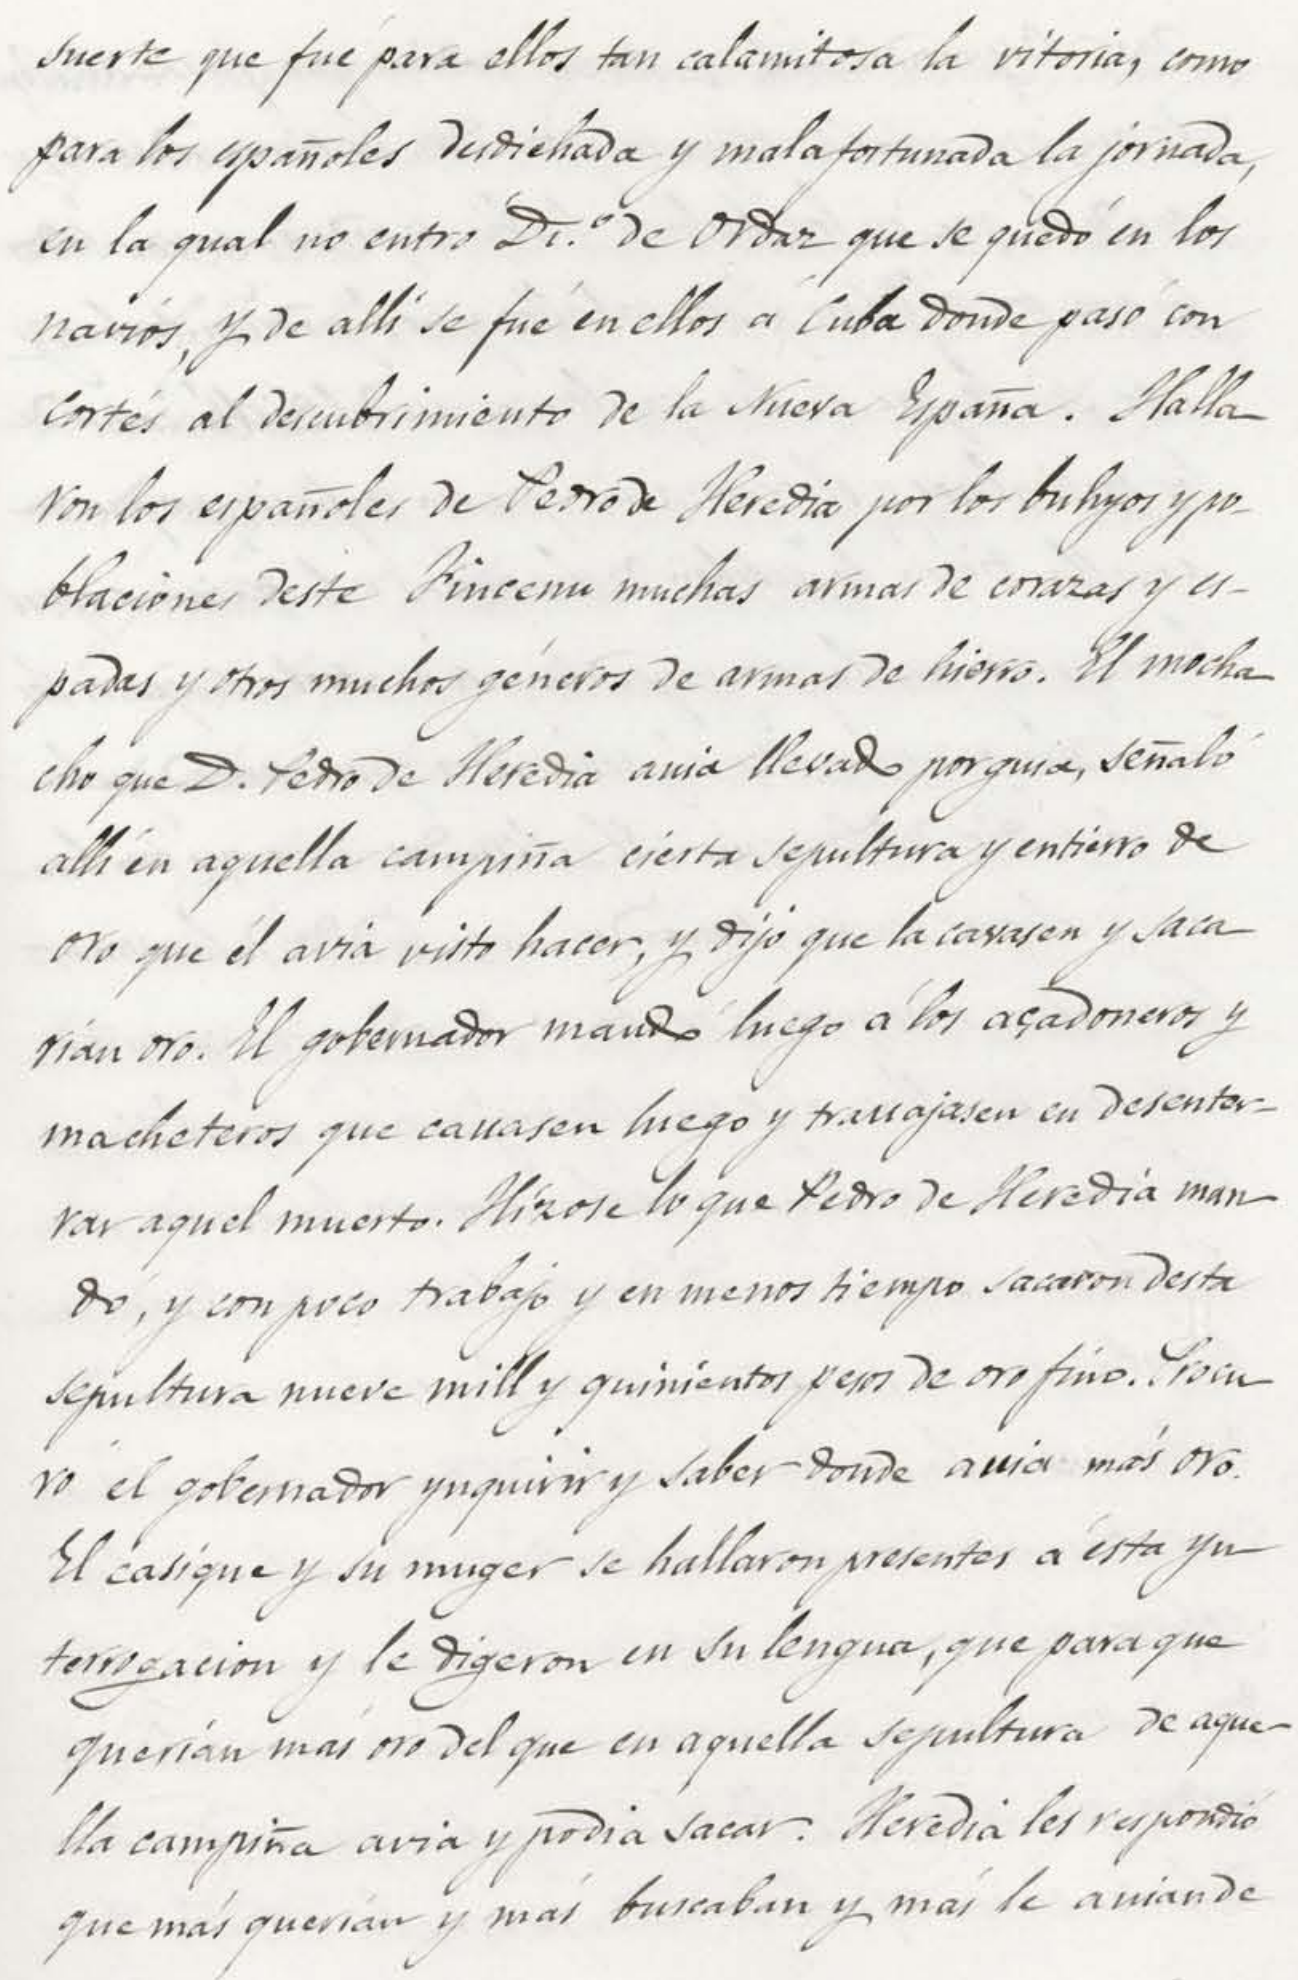 suerte que fué para ellos tan calamitosa la vitoria, como
para los españoles desdichada y malafortunada la jornada,
en la qual no entro Di.º de Ordaz que se quedó en los
navios, y de alli se fué en ellos á Cuba donde pasó con
Cortés al descubrimiento de la Nueva España. Halla
ron los españoles de Pedro de Heredia por los buhyos y po-
blaciones deste Fincenu muchas armas de corazas y es-
padas y otros muchos géneros de armas de hierro. El mocha
cho que D. Pedro de Heredia auia llevado por guia, señaló
alli en aquella campiña cierta sepultura y entierro de
oro que él avia visto hacer, y dijo que la cavasen y saca
rian oro. El gobernador mandó luego á los açadoneros y
macheteros que cauasen luego y trauajasen en desenter-
rar aquel muerto. Hízose lo que Pedro de Heredia man
dó, y con poco trabajo y en menos tiempo sacaron desta
sepultura nueve mill y quinientos pesos de oro fino. Procu
ró el gobernador ynquirir y saber donde auia más oro.
El casique y su muger se hallaron presentes á esta yn
terrogacion y le digeron en su lengua, que para que
querian más oro del que en aquella sepultura de aque-
lla campiña avia y podia sacar. Heredia les respondió
que más querian y más buscaban y más le auian de